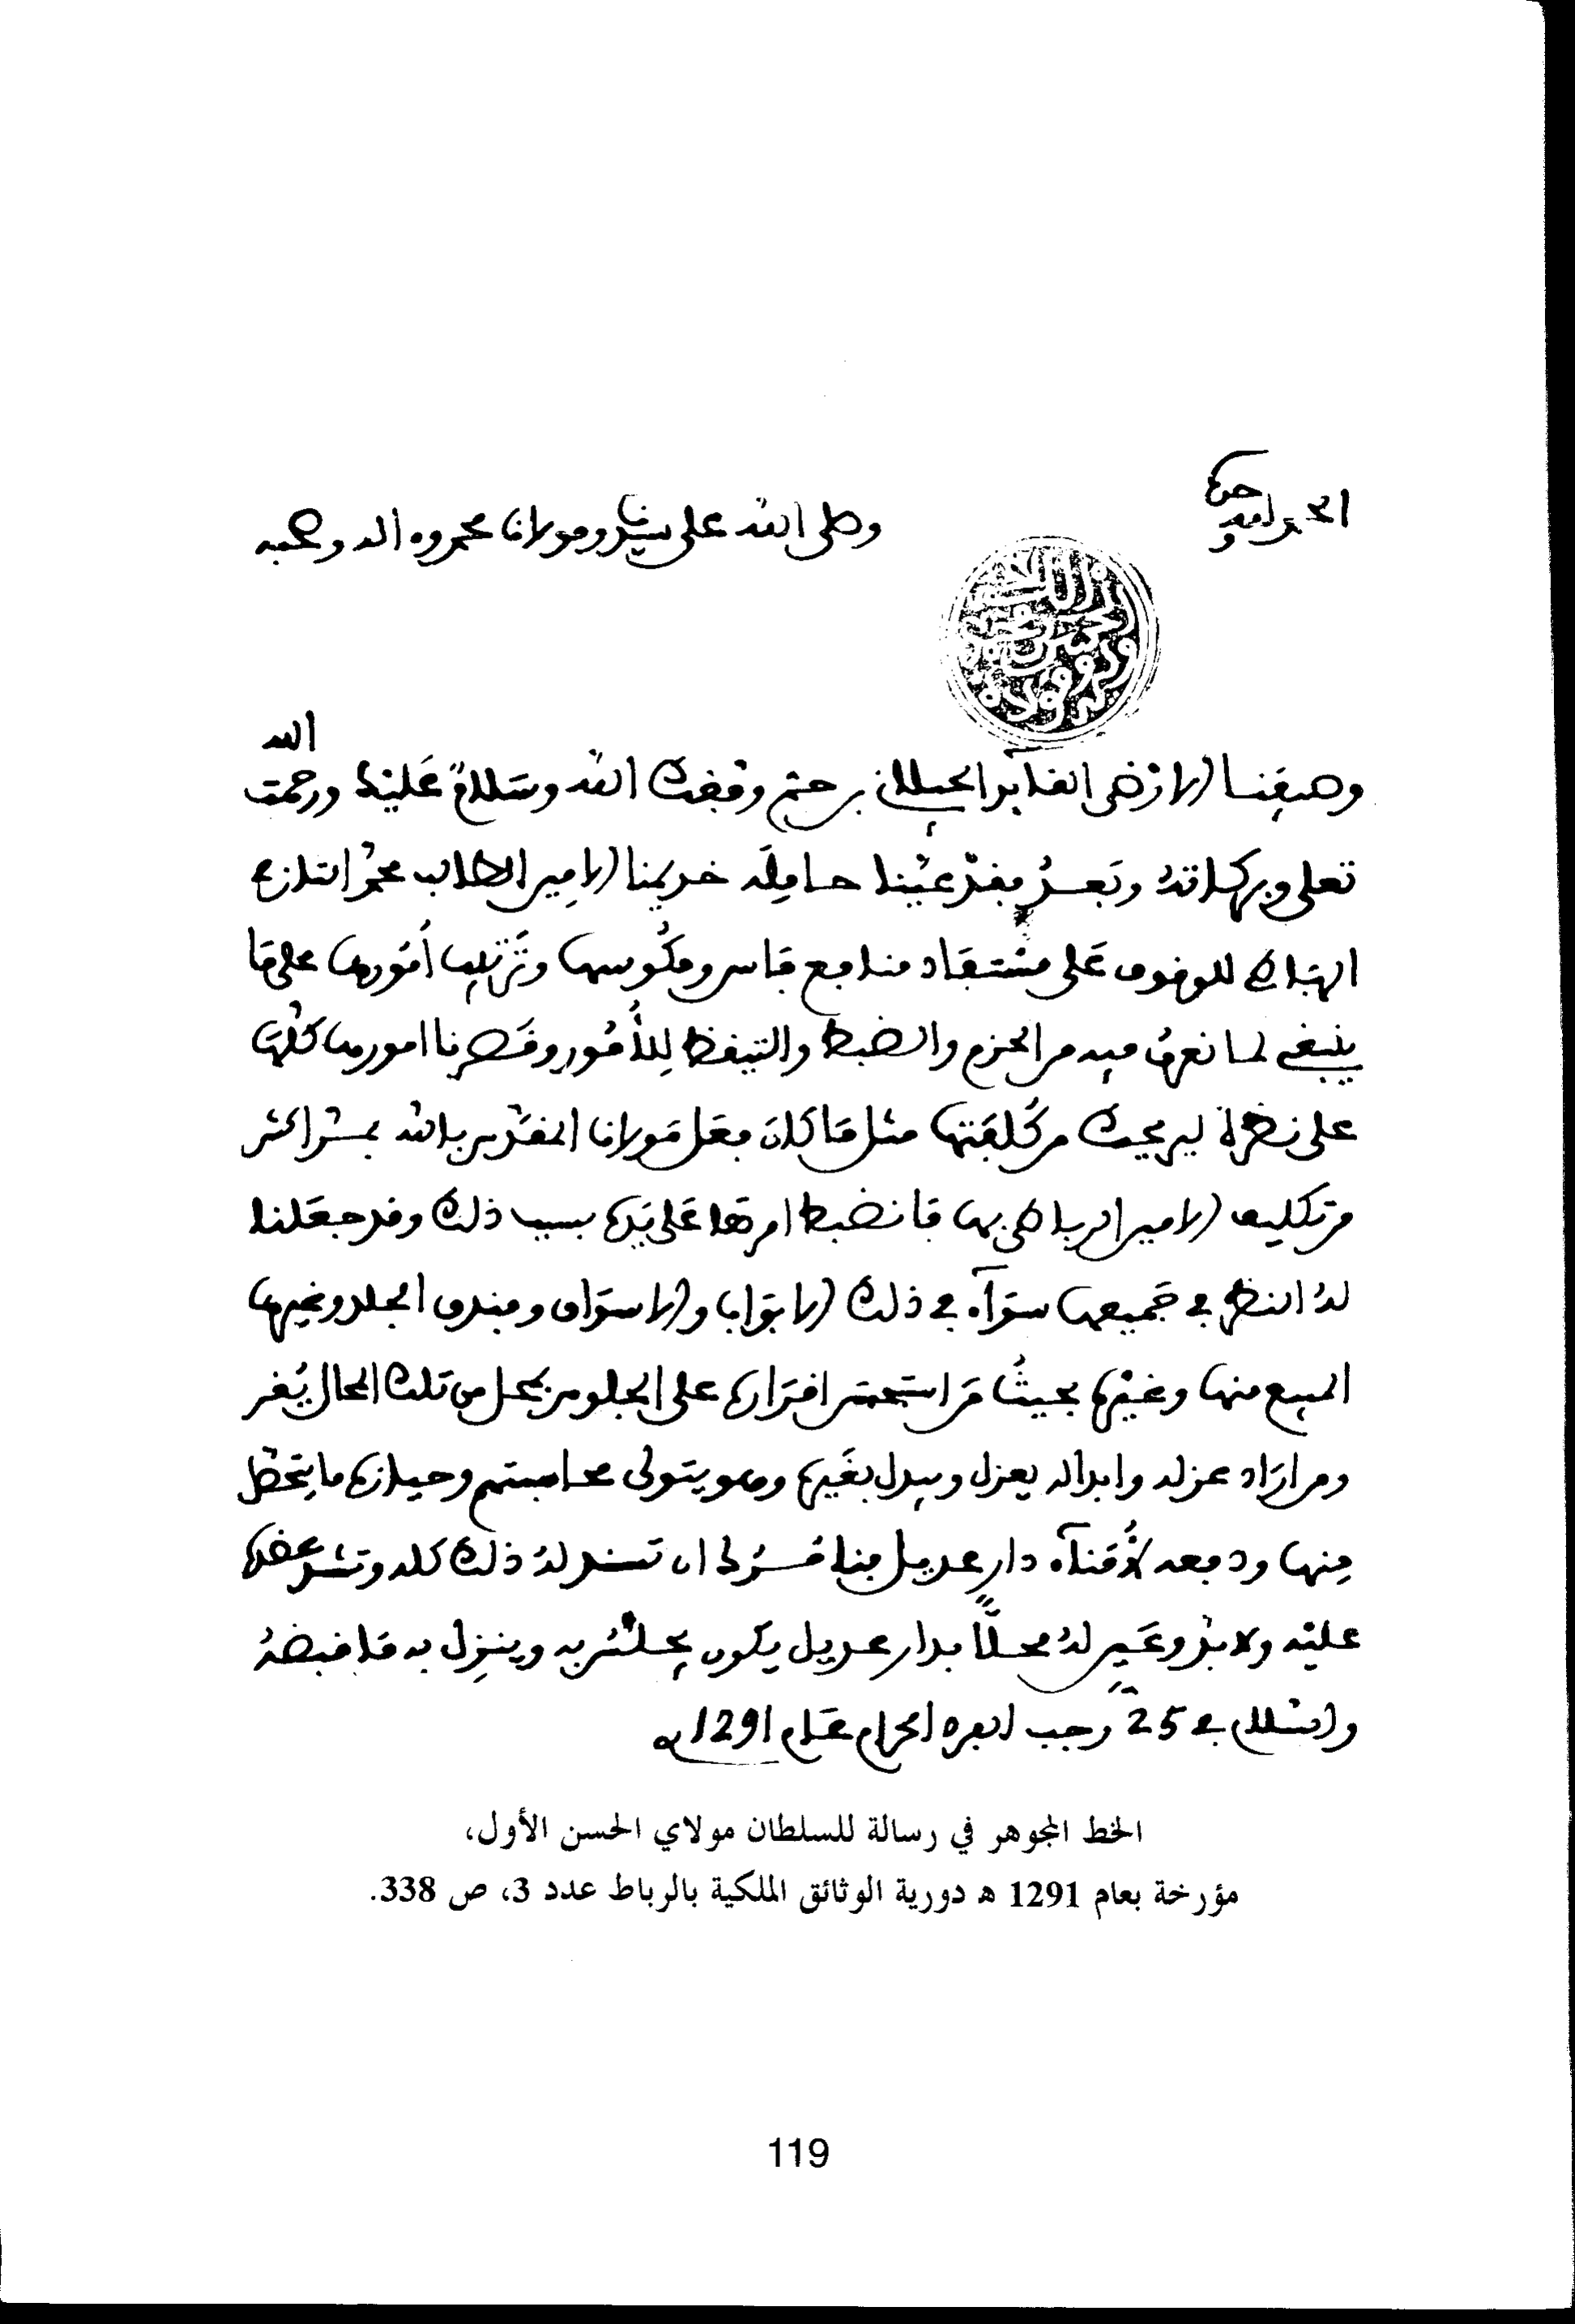 الحمد لله وحده
وصلى الله على سيدنا ومولانا محمد وءاله وصحبه
وصيفنا الأرضى القائد الجيلاني بن حم وفقك الله وسلام عليك ورحمت الله
تعلى وبركاته وبعد فقد عينا حامله خديمنا الامين الطالب محمد التازي
الرباطي للوقوف على مستفاد منافع فاس ومكوسها وترتيب أمورها على ما
ينبغي لما نعرف فيه من الحزم والضبط والتيقظ للأمور وقصرنا امورها كلها
على نظره ليريحك من كلفتها مثل ما كان فعل مولانا المقدس بالله بمراكش
من تكليف الامين الرباطي بها فانضبط امرها على يده بسبب ذلك وقد جعلنا
له النظر في جميعها سوآء في ذلك الابواب والاسواق وفندق الجلد وغيرها
المبيع منها وغيره بحيث من استحسن اقراره على الجلوس بمحل من تلك المحال يُقر
ومن اراد عزله وابداله يعزل ويبدل بغيره وهو يتولى محاسبتهم وحيازة ما يتحصل
منها ودفعه لأمنآء دار عديل فنامرك ان تسند له ذلك كله وتشد عضده
عليه ولا بد وعين له محلًّا بدار عديل يكون يجلس به وينزل به ما قبضهُ
والسلام في 25 رجب الفرد الحرام عام 1291
الخط المجوهر في رسالة للسلطان مولاي الحسن الأول،
مؤرخة بعام 1291 هـ دورية الوثائق الملكية بالرباط عدد 3، ص 338.
119